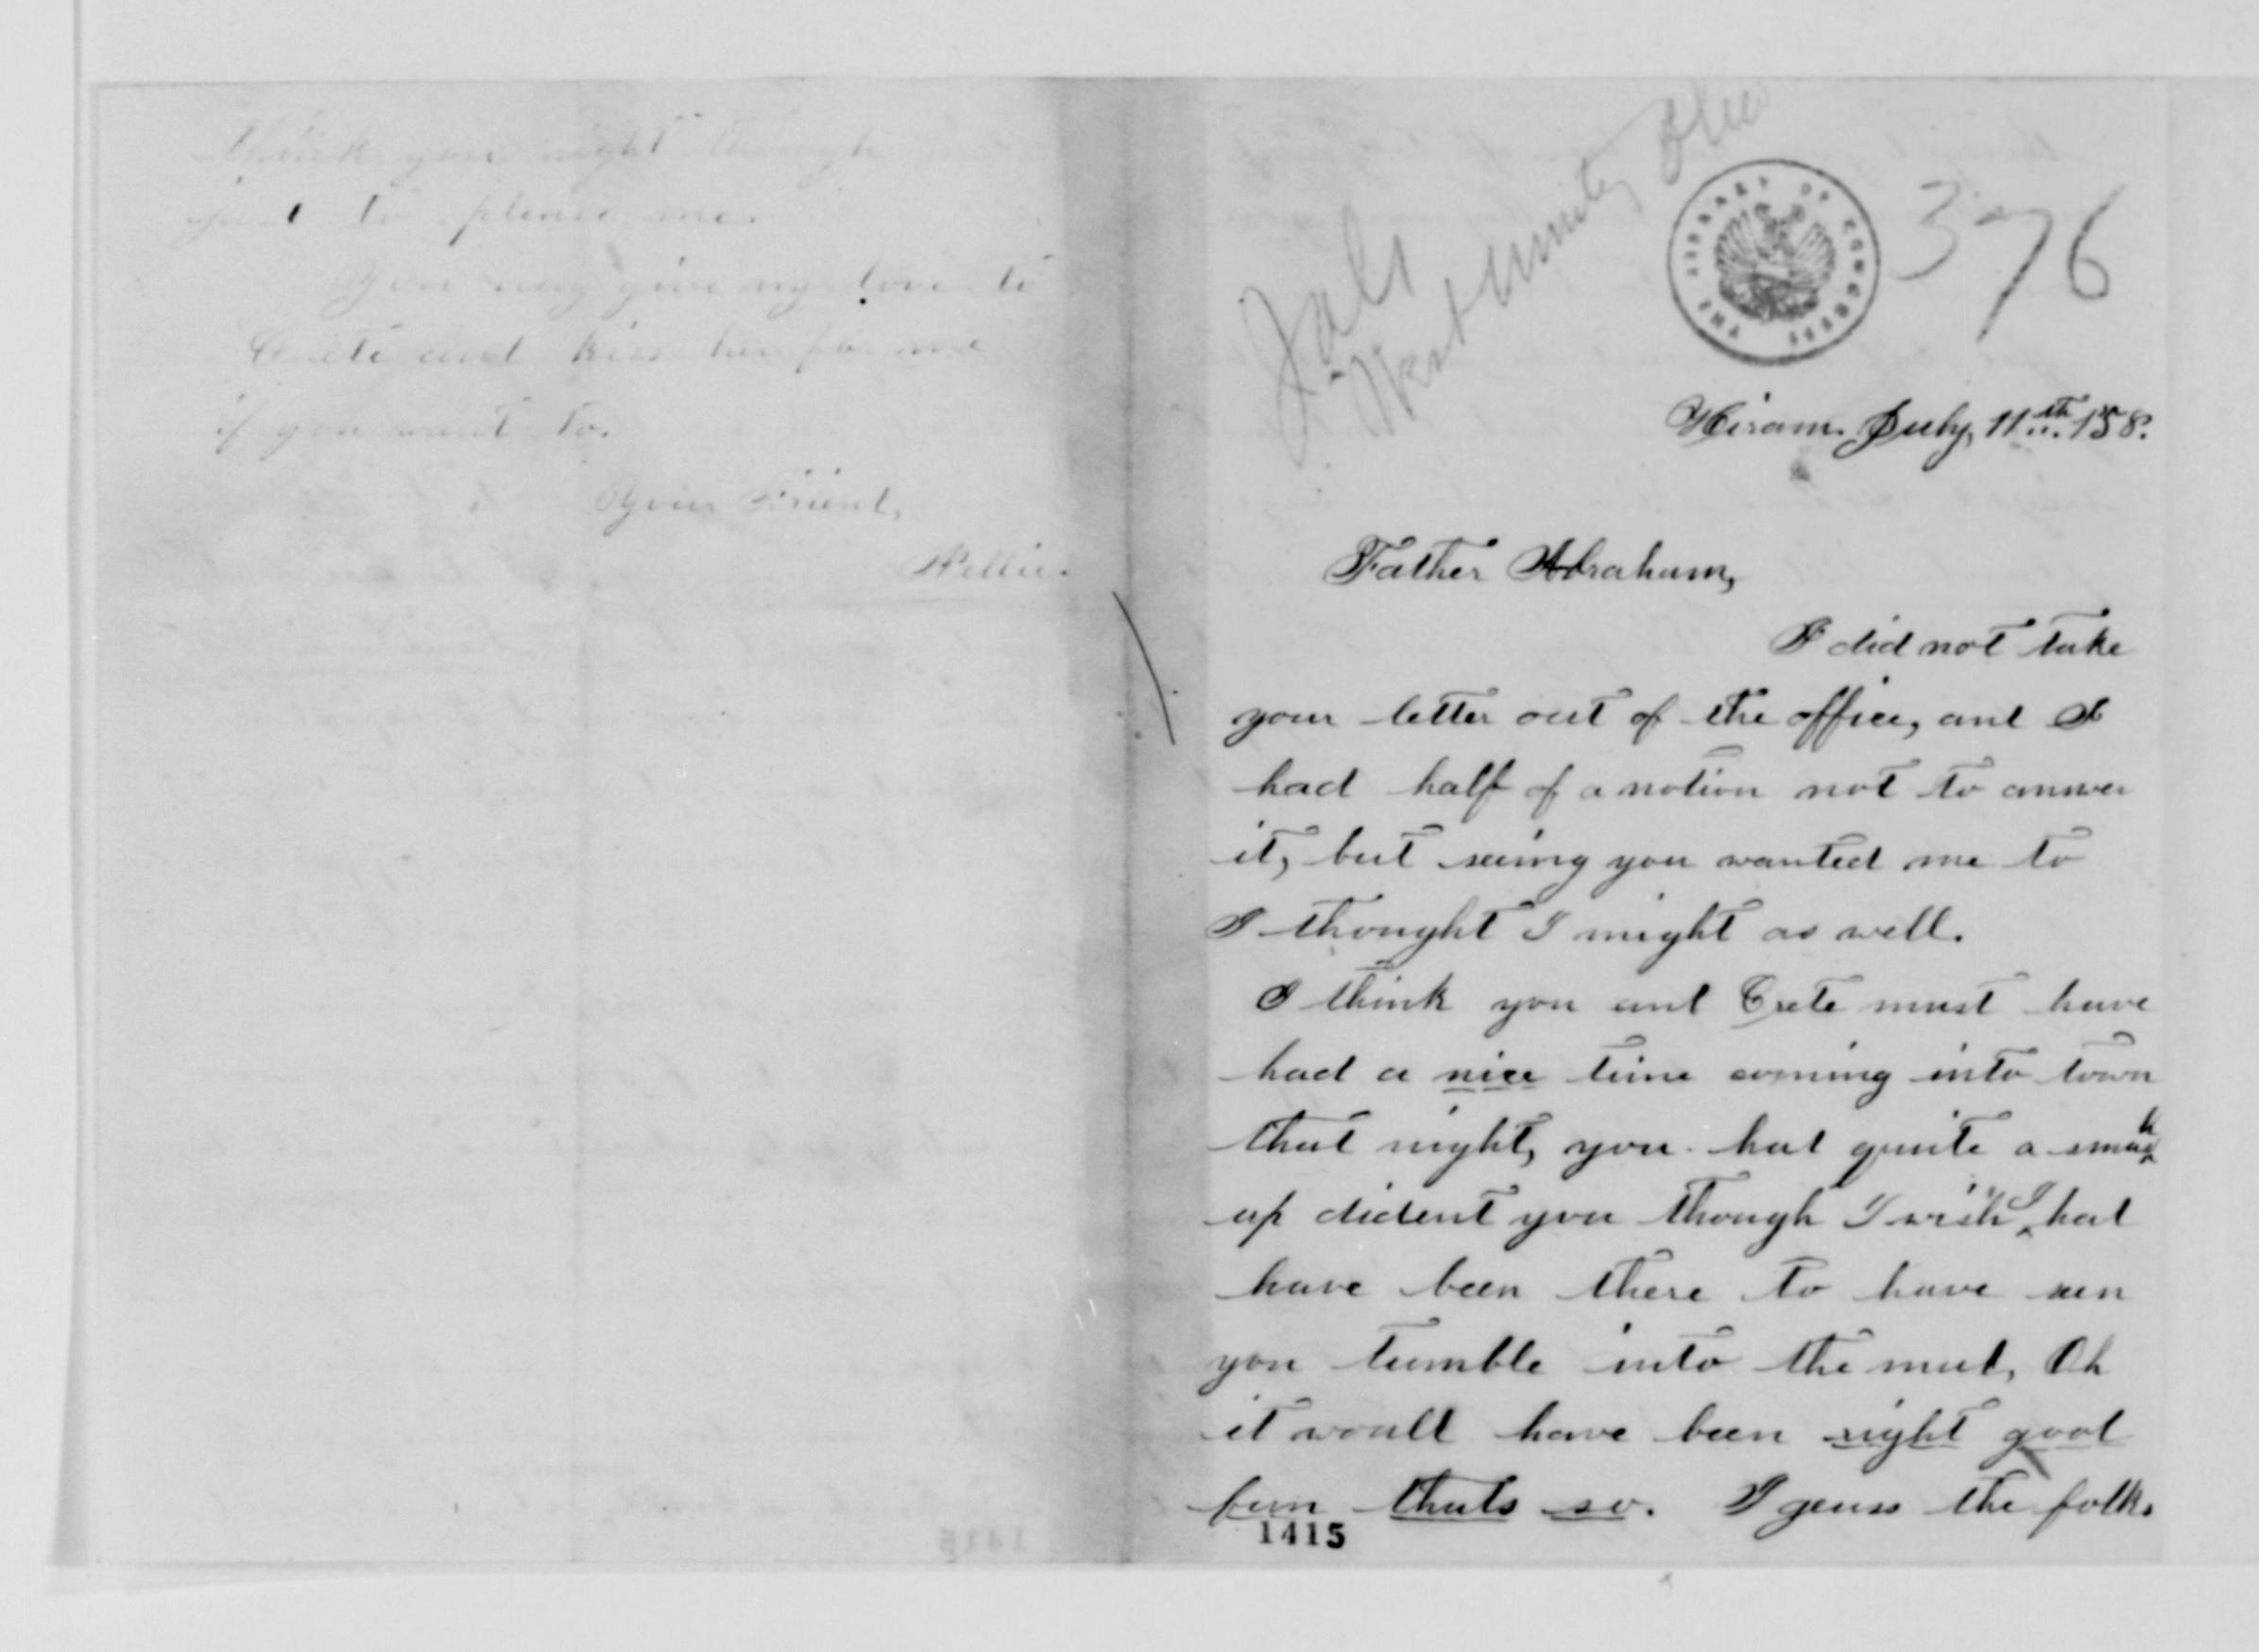 think you might though
just to please me.
You may give my love to
Crete and kiss her for me
if you want to.
Your Friend,
Nellie.
West Unity Ohio
THE LIBRARY OF CONGRESS
376
Hiram. July, 11th. 158.
Father Abraham,
I did not take
your letter out of the office, and I
had half of a notion not to answer
it, but seeing you wanted me to
I thought I might as well.
I think you and Crete must have
had a nice time coming into town
that night, you had quite a smash
up dident you though I wish I had
have been there to have seen
you tumble into the mud, Oh
it would have been right good
fun thats so. I geuss the folks
1415